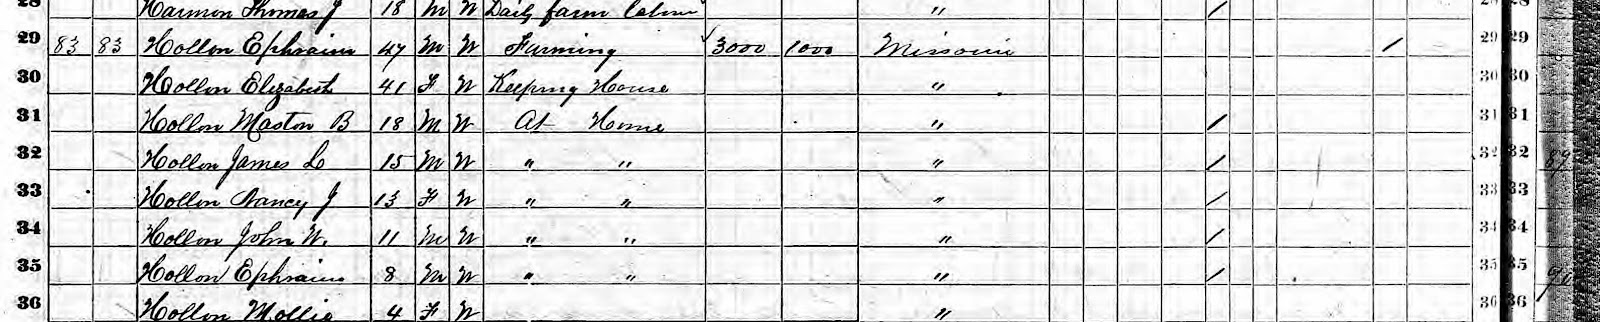 28 Harmon Thomas J 18 M W Daily farm labor " /
29 83 83 Hollon Ephraim 47 M W Farming 3000 1000 Missouri / 29 29
30 Hollon Elizabeth 41 F W Keeping House " 30 30
31 Hollon Maston B 18 M W At Home " / 31 31
32 Hollon James L 15 M W " " " / 32 32 89
33 Hollon Nancy J 13 F W " " " / 33 33
34 Hollon John W. 11 M W " " " / 34 34
35 Hollon Ephraim 8 M W " " " / 35 35 90
36 Hollon Mollie 4 F W " 36 36